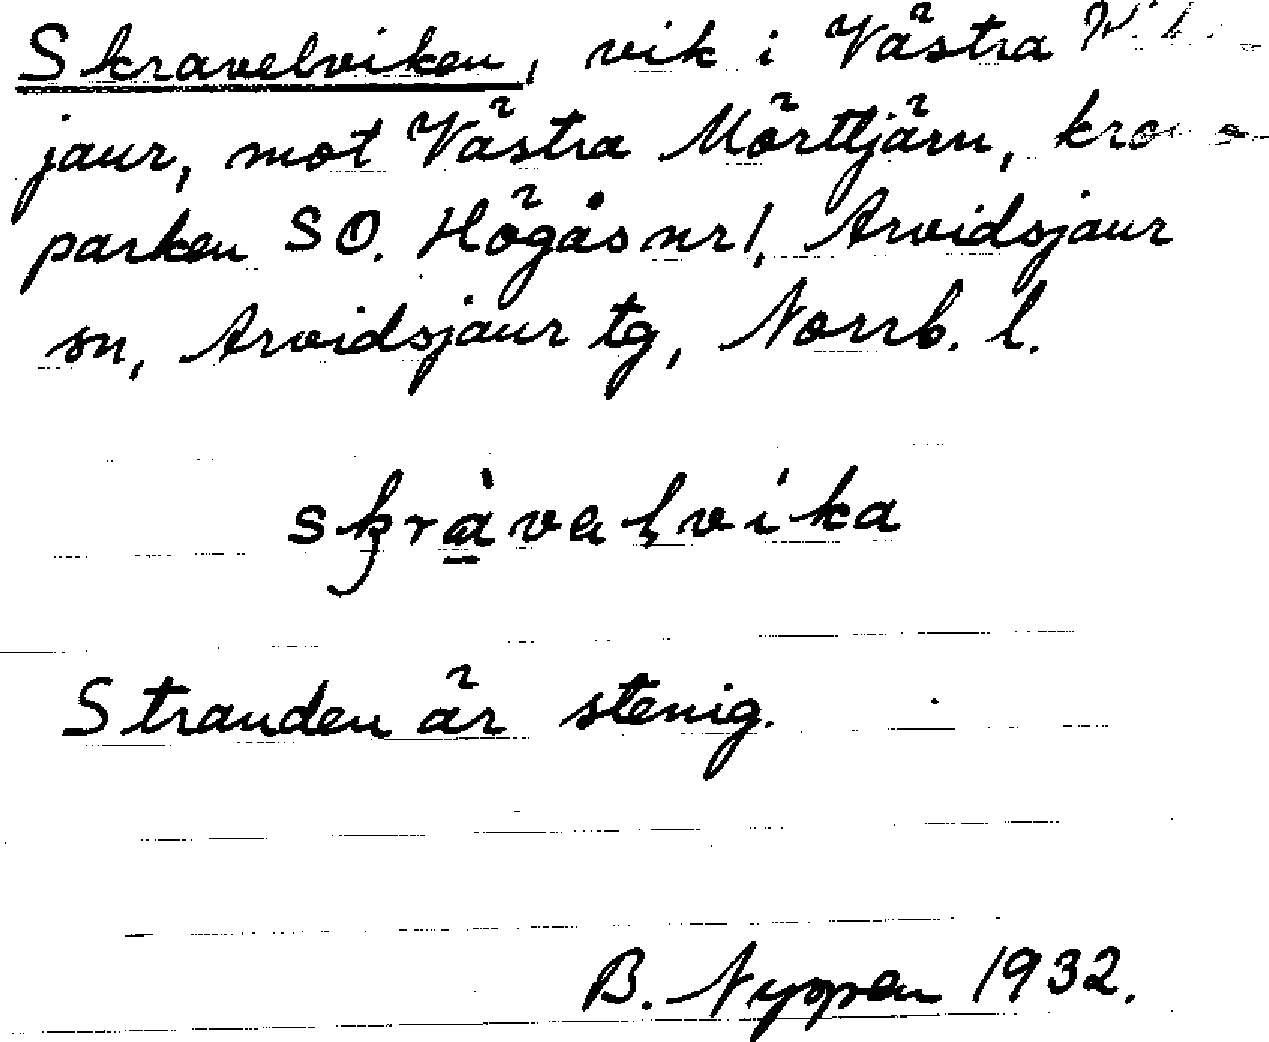 Skravelviken, vik i Västra
jaur, mot Västra Mörttjärn,
parken SO. Högås nr 1, Arvidsjaur
sn, Arvidsjaur tg, Norrb. l.
skràvelvíka
Stranden är stenig.
B. Nyppen 1932.